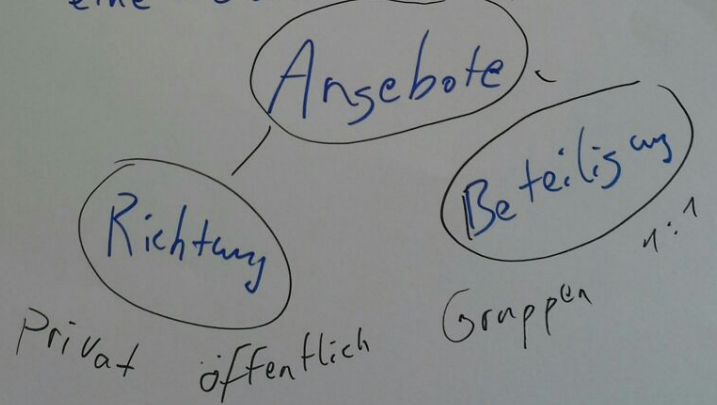 eine
Angebote
Richtung
Beteiligung
1:1
Privat öffentlich
Gruppen